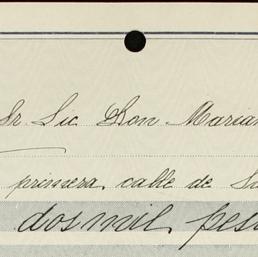 Sr. Lic. Don Marian
primera calle de
dos mil pes